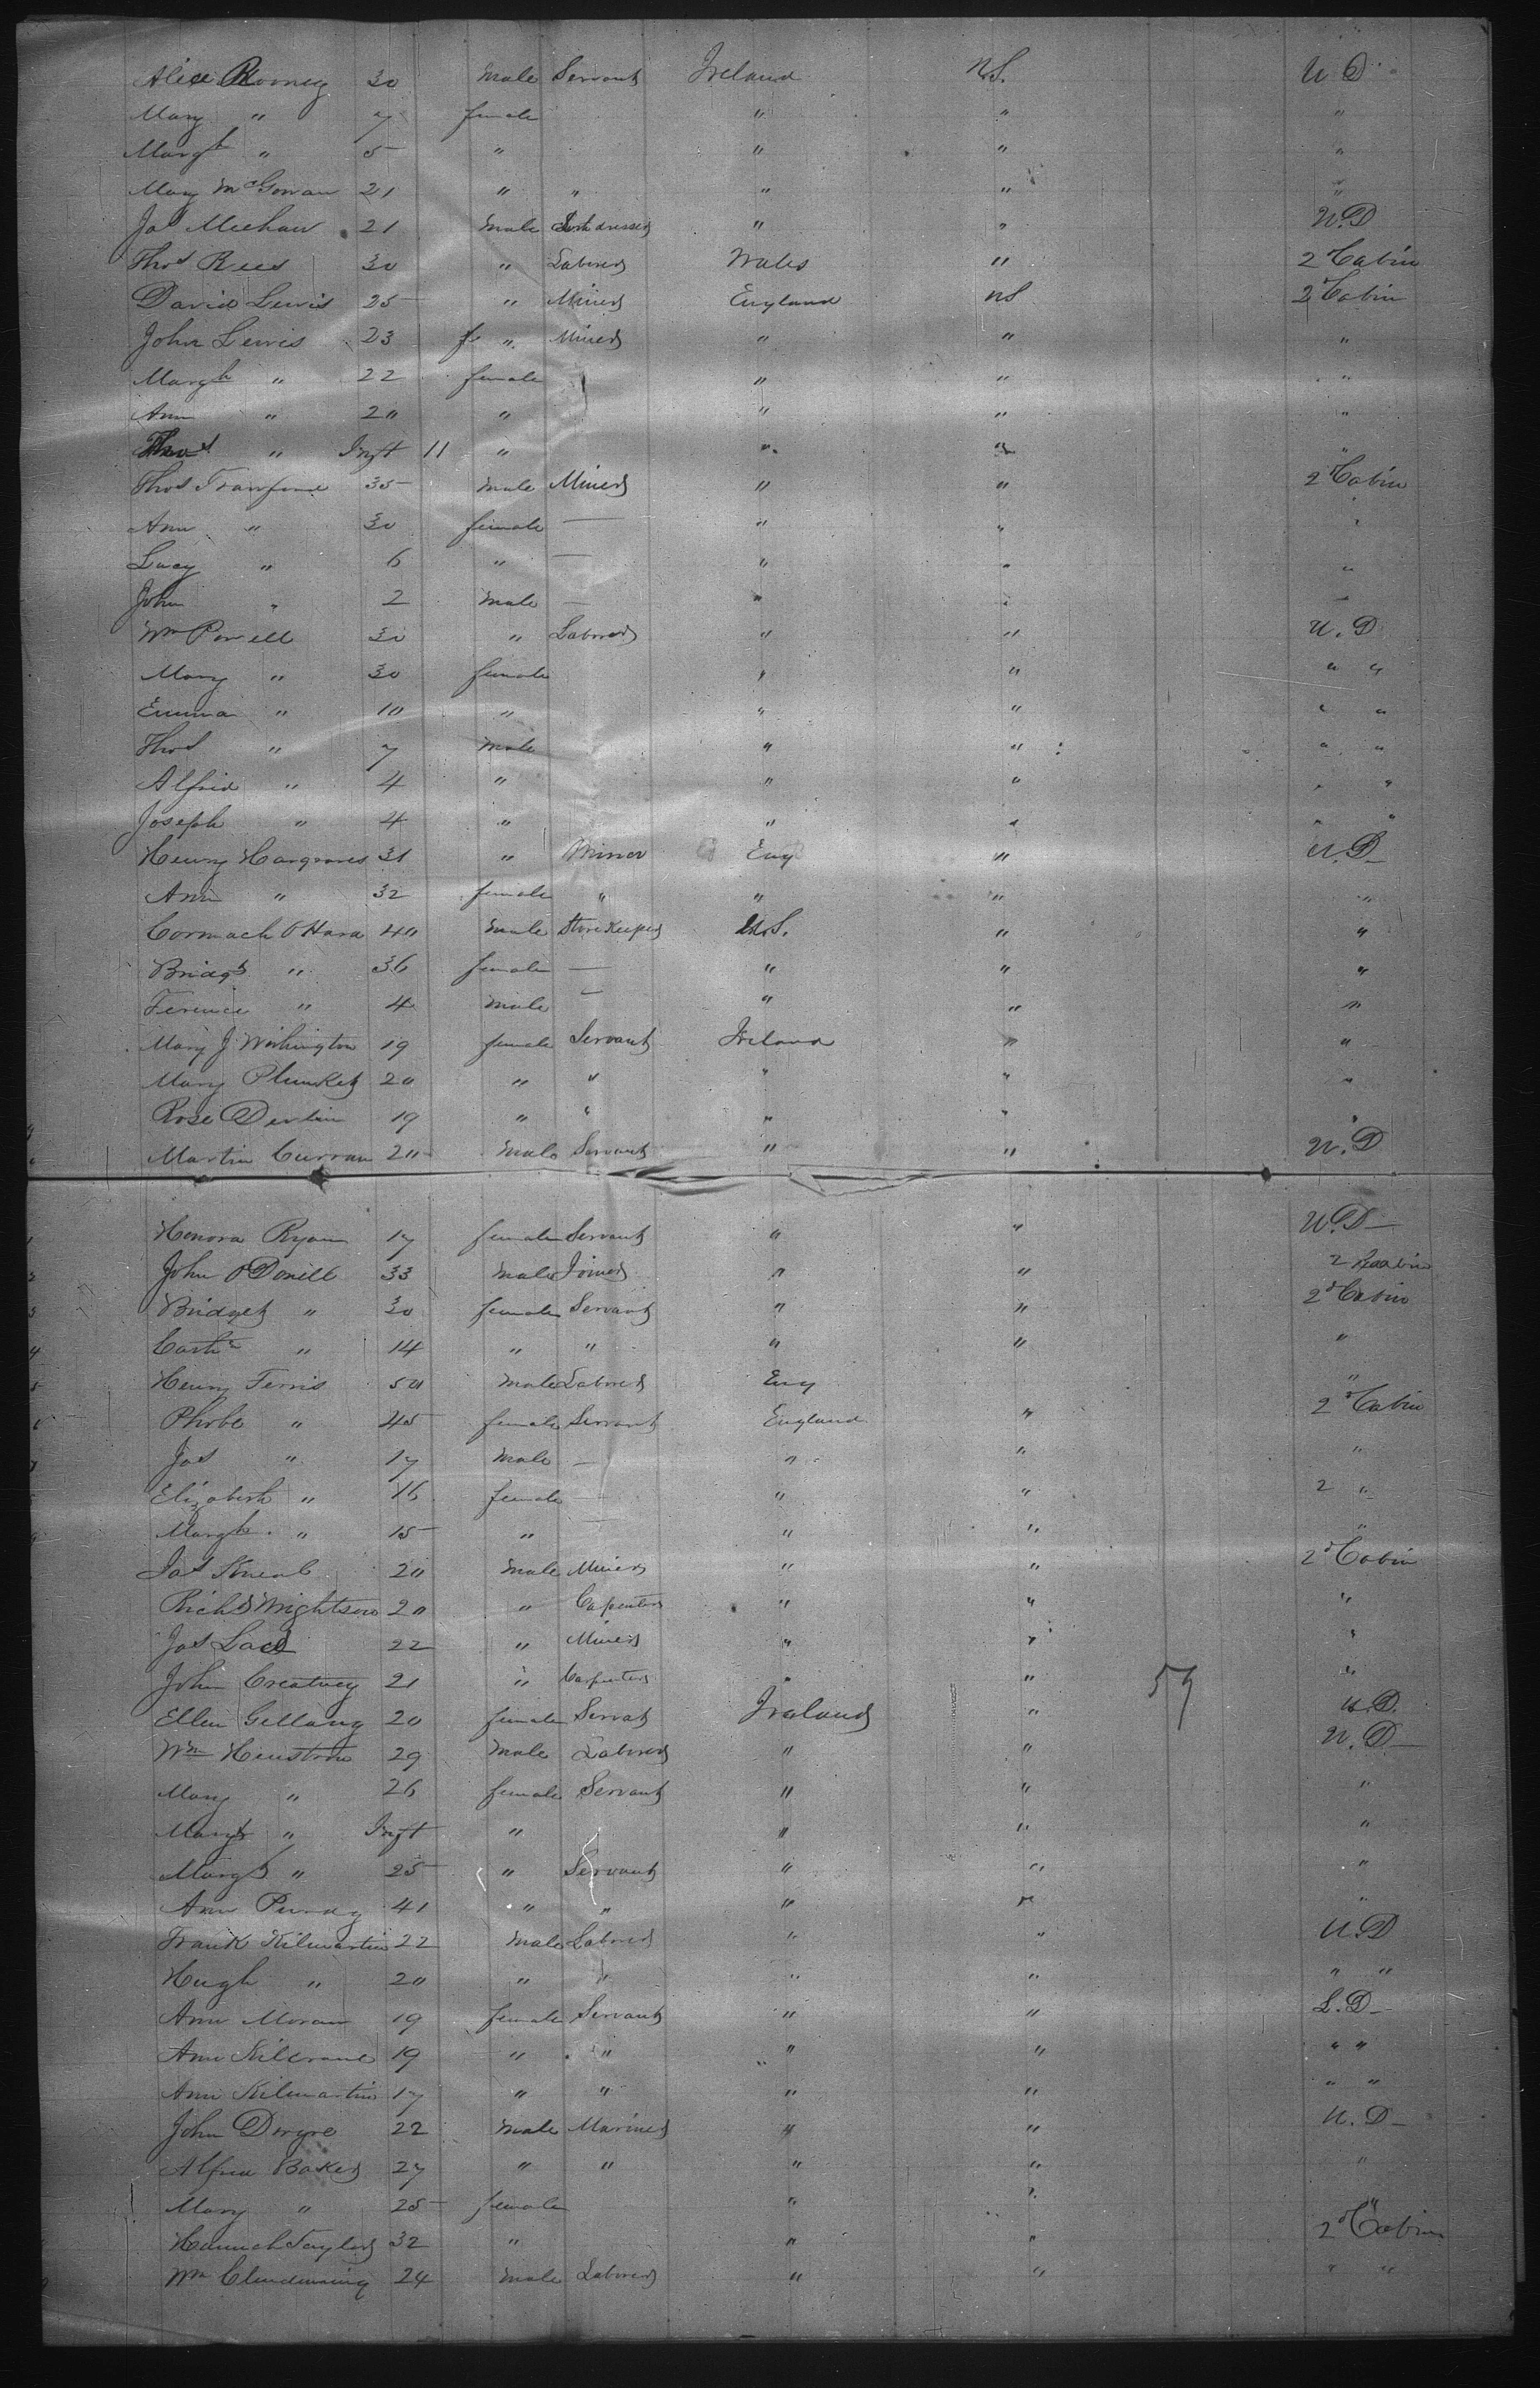 Alice Rooney 30 Male Servant Ireland U.S. U D
Mary " 7 female " " "
Margt " 5 " " " "
Mary McGowan 21 " " " " "
Jas Meehan 21 Male dresser " " U.D
Thos Rees 30 " Laborer Wales " 2 Cabin
David Lewis 25 " Miner England US 2 Cabin
John Lewis 23 " Miner " " "
Margt " 22 female " " "
Ann " 20 " " " "
Thos " Inft 11 " " " "
Thos 35 Male Miner " " 2 Cabin
Ann " 30 female — " " "
Lucy " 6 " — " " "
John " 2 Male — " " "
Wm Powell 30 " Laborer " " U.D
Mary " 30 female " " " "
Emma " 10 " " " " "
Thos " 7 Male " " " "
Alfred " 4 " " " " "
Joseph " 4 " " " " "
Henry Hargraves 31 " Minor Eng " U.D
Ann " 32 female " " " "
Cormack O'Hara 40 Male Storekeeper U.S. " "
Bridgt " 36 female — " " "
Terence " 4 Male — " " "
Mary J Worthington 19 female Servant Ireland " "
Mary Plunket 20 " " " " "
Rose Devlin 19 " " " " "
Martin Curran 20 Male Servant " " U.D
Honora Ryan 17 female Servant " " U.D
John O'Donell 33 Male Joiner " " 2 Cabin
Bridget " 30 female Servant " " 2d Cabin
Cathe " 14 " " " " "
Henry Ferris 50 Male Laborer Eng "
Phobe " 45 female Servant England " 2d Cabin
Jas " 17 Male — " " "
Elizabeth " 16 female — " " 2 "
Margt " 15 " — " " "
Jas 20 Male Miner " " 2d Cabin
Richd Wrightson 20 " Carpenter " " "
Jas Lace 22 " Miner " " "
John Creatney 21 " Carpenter " " 57 "
Ellen 20 female Servat Ireland " U.D.
Wm Heustron 29 Male Laborer " " U.D.
Mary " 26 female Servant " " "
Margt " Inft " " " "
Margt " 25 " Servant " " "
Ann 41 " " " " "
Frank Kilmartin 22 Male Laborer " " U.D
Hugh " 20 " " " " " "
Ann Moran 19 female Servant " " L.D
Ann Kilcrane 19 " " " " " "
Ann Kilmartin 17 " " " " " "
John Dwyre 22 Male Mariner " " U.D
Alfred Baker 27 " " " " "
Mary " 25 female " " "
Hannah Taylor 32 " " " 2d Cabin
Wm Clendenning 24 Male Laborer " " " "